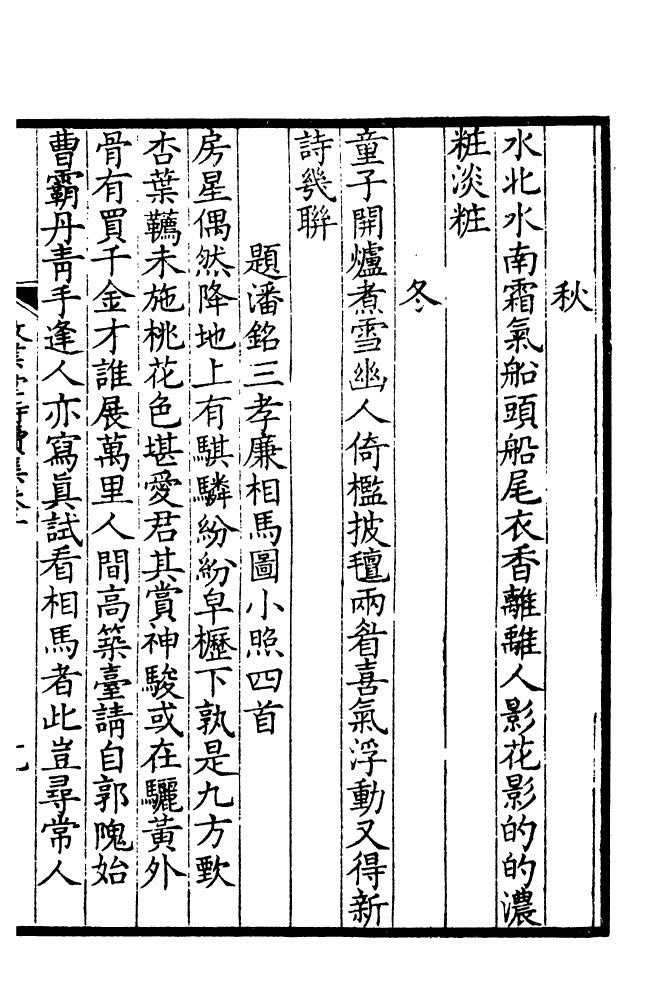 秋
水北水南霜氣船頭船尾衣香離離人影花影的的濃
粧淡粧
冬
童子開爐煮雪幽人倚檻披氊兩眉喜氣浮動又得新
詩幾聯
題潘銘三孝廉相馬圖小照四首
房星偶然降地上有騏驎紛紛皁櫪下孰是九方歅
杏葉韉未施桃花色堪愛君其賞神駿或在驪黃外
骨有買千金才誰展萬里人間高築臺請自郭隗始
曹霸丹青手逢人亦寫眞試看相馬者此豈尋常人